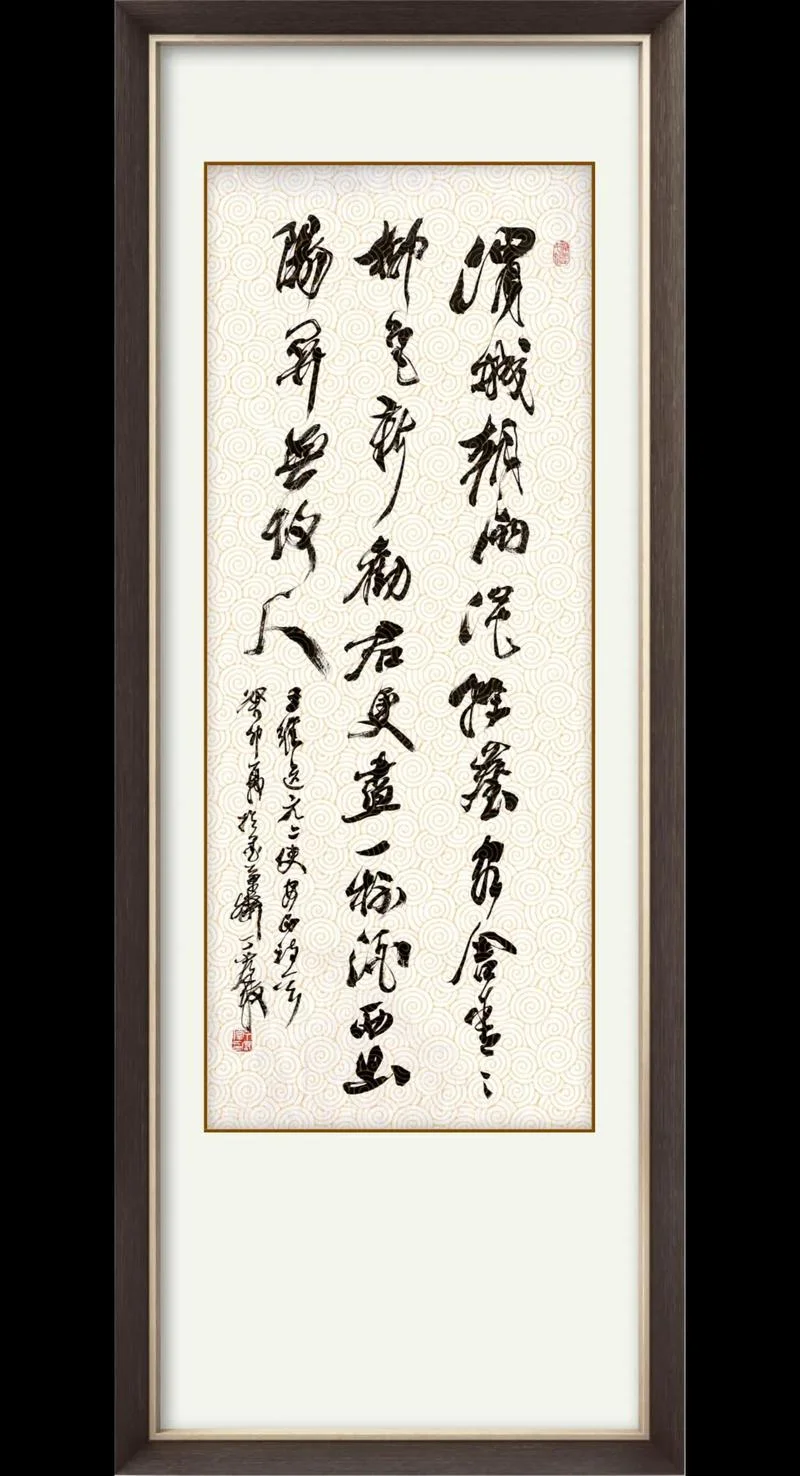 渭城朝雨浥輕塵客舍青〻
柳色新勸君更盡一杯酒西出
陽關無故人
王維送元二使安西詩一首
癸卯夏於